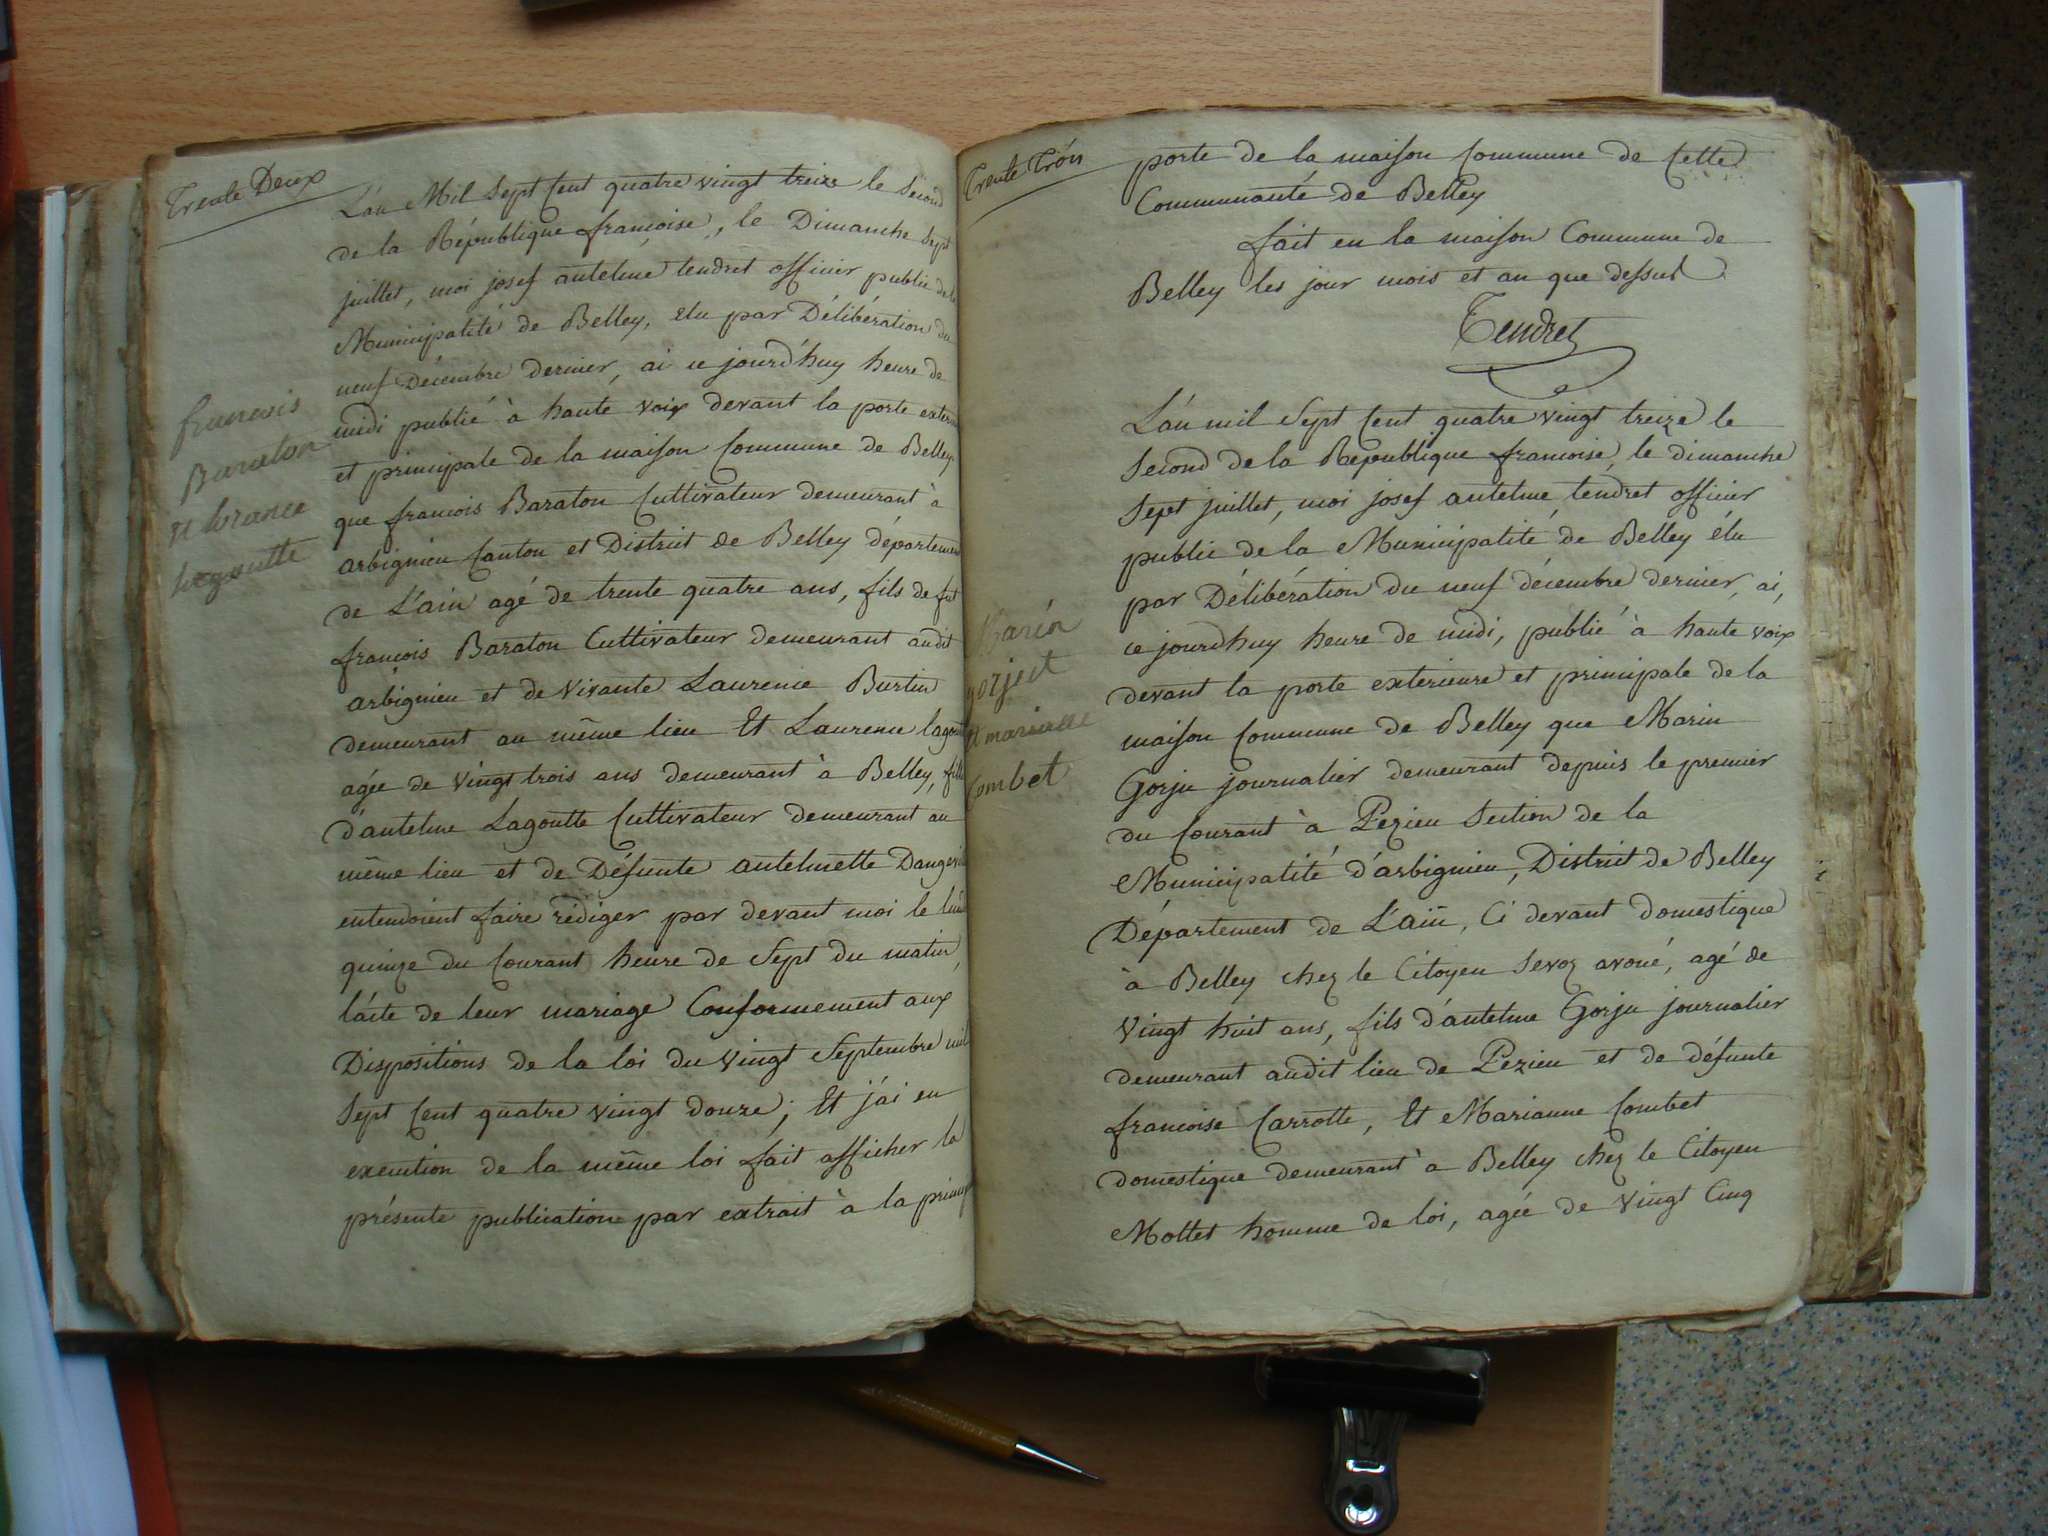 Trente Deux
L'an Mil Sept Cent quatre vingt treize le Second
de la République françoise, le Dimanche Sept
juillet, moi josef antelme tendret officier public de la
Municipalité de Belley, elu par Délibération du
neuf Décembre dernier, ai ce jourd'huy heure de
midi publié à haute voix devant la porte exterieure
et principale de la maison Commune de Belley
que francois Baraton Cultivateur demeurant à
arbignieu Canton et District de Belley département
de L'ain agé de trente quatre ans, fils de fut
francois Baraton Cultivateur demeurant audit
arbignieu et de vivante Laurence Burtin
demeurant au même lieu Et Laurence lagoutte
agée de vingt trois ans demeurant à Belley, fille
d'antelme Lagoutte Cultivateur demeurant au
même lieu et de Défunte antelmette
entendoient faire rédiger par devant moi le lundi
quinze du Courant heure de Sept du matin,
l'acte de leur mariage Conformement aux
Dispositions de la loi du vingt Septembre mil
Sept Cent quatre vingt douze; Et j'ai en
execution de la même loi fait afficher la
présente publication par extrait à la principale
francois
Baraton
et lorance
lagoutte
Trente Trois
porte de la maison Commune de Cette
Communauté de Belley
fait en la maison Commune de
Belley les jour mois et an que dessus
Tendret
L'an mil Sept Cent quatre vingt treize le
Second de la République francoise, le dimanche
Sept juillet, moi josef antelme tendret officier
public de la Municipalité de Belley élu
par Délibération du neuf décembre dernier, ai,
ce jourdhuy heure de midi, publié à haute voix
devant la porte exterieure et principale de la
maison Commune de Belley que Marin
Gorju journalier demeurant depuis le premier
du Courant à Pezieu Section de la
Municipalité d'arbignieu, District de Belley
Département de L'ain, Ci devant domestique
à Belley chez le Citoyen Sevoz avoué, agé de
Vingt huit ans, fils d'antelme Gorju journalier
demeurant audit lieu de Pezieu et de défunte
francoise Carrotte, Et Marianne Combet
domestique demeurant à Belley chez le Citoyen
Mollet homme de loi, agée de vingt Cinq
Marin
gorject
et marianne
Combet